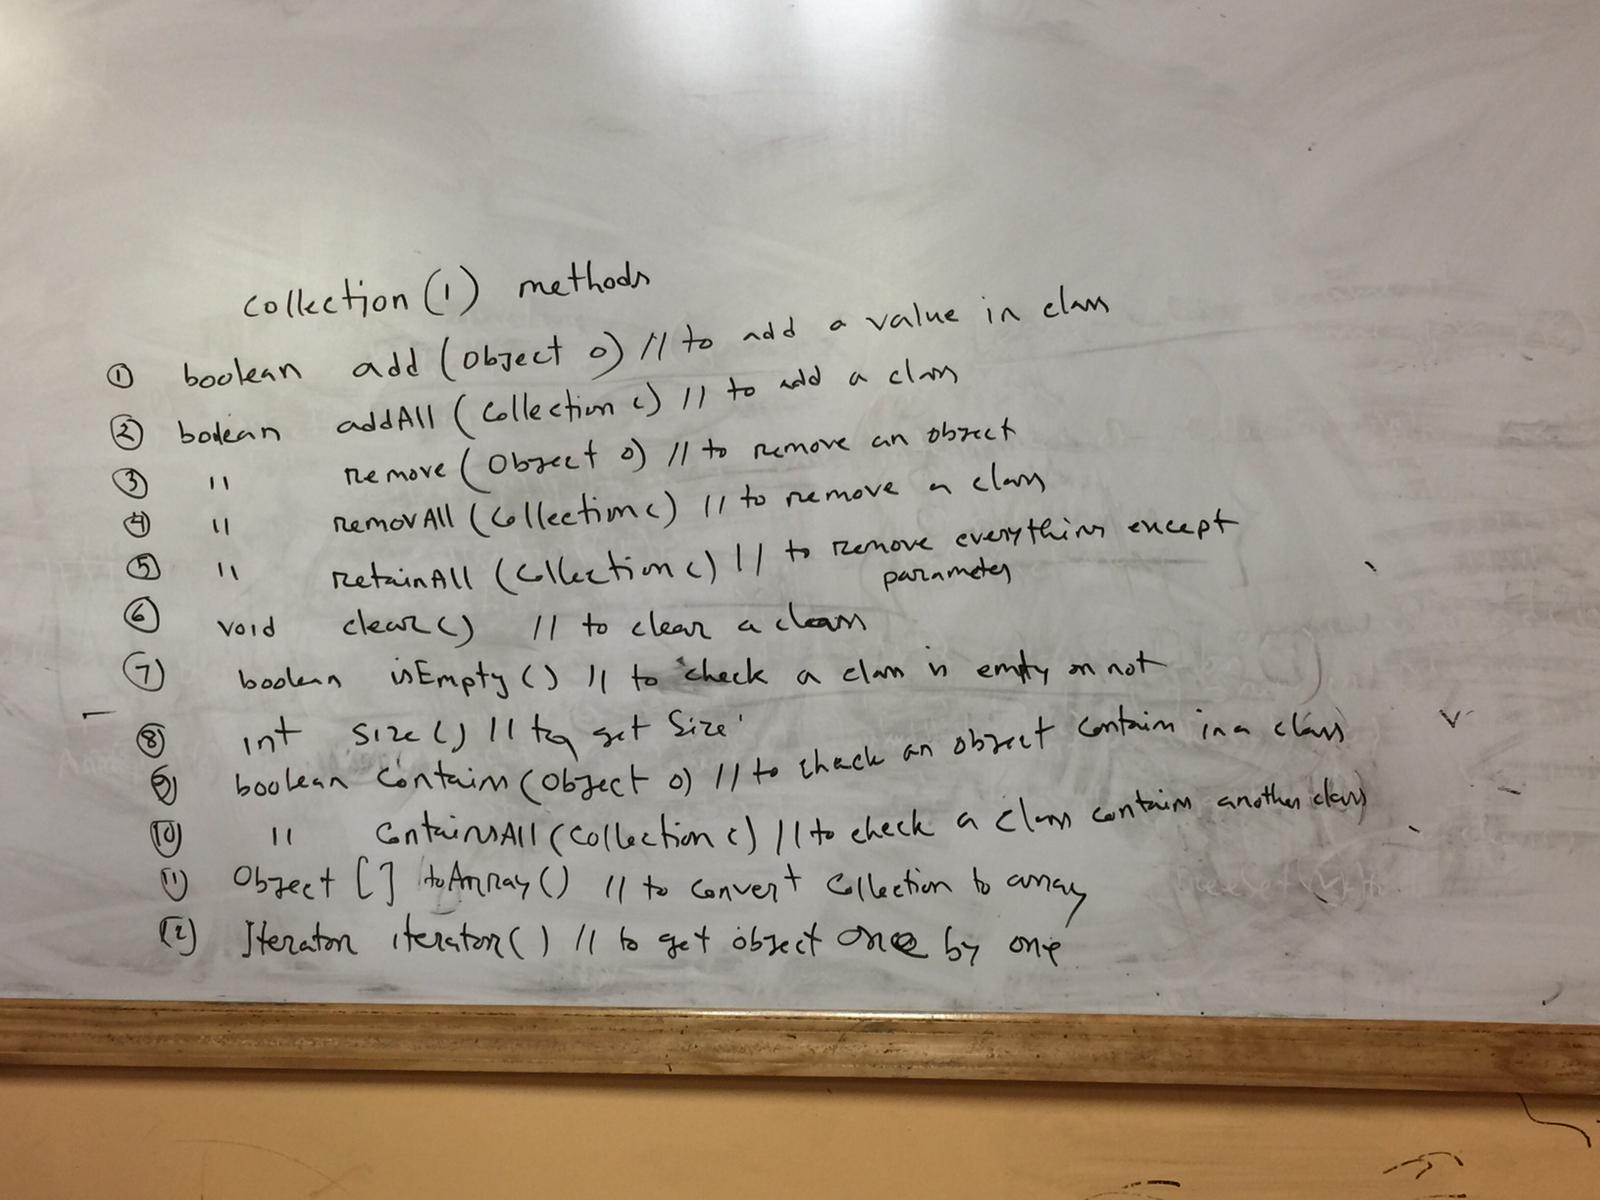 collection (1) methods
① boolean add (Object o) // to add a value in class
② bolean addAll (Collection c) // to add a class
③ " remove (Object o) // to remove an object
④ " removAll (Collection c) // to remove a class
⑤ " retainAll (Collection c) // to remove everything except
parameter
⑥ void clear() // to clear a class
⑦ boolean isEmpty () // to check a class is empty or not
⑧ int size () // to get Size
⑨ boolean contains (Object o) // to chack an object contain in a class
⑩ " ContainsAll (Collection c) // to check a class contains another class
⑪ Object [] toArray () // to convert Collection to array
⑫ Iterator iterator() // to get object one by one